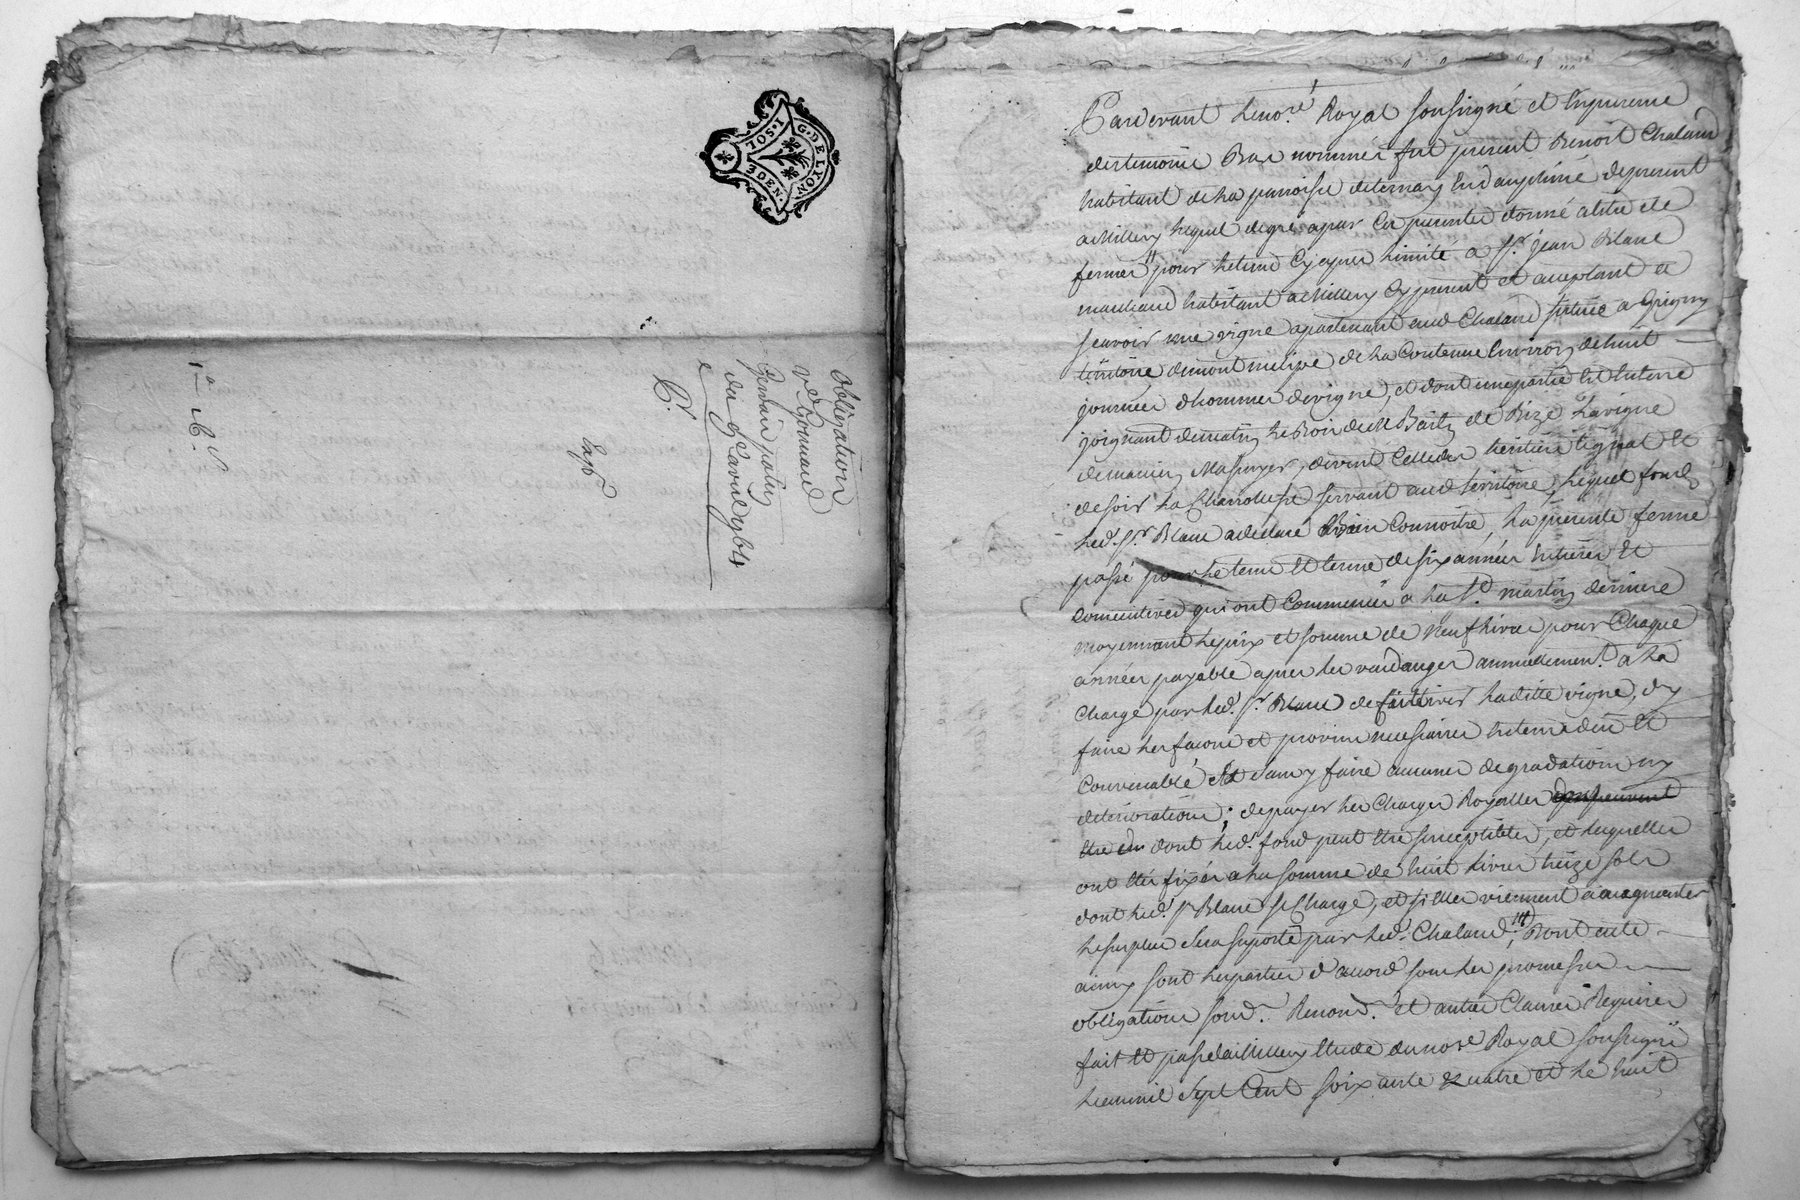 G. DE LYON.
1. SOL.
3 DEN.
Obligation
Germain patin
du 9 avril 1764
Pardevant le no.re Royal soussigné et En presence
des temoins Bas nommés fut present Benoit Chaland
habitant de la paroisse de ternay En dauphiné de present
a Millery lequel de gré a par Ces presentes donné a titre de
ferme pour le tems Cy apres limité a Sr. jean Blanc
marchand habitant a Millery Cy present et acceptant a
scavoir une vigne apartenant aud Chaland située a Grigny
territoire de mont de la Contenue Environ de huit
journées d'hommes de vigne, et dont une partie Est En terre
joignant de matin de Bizé la vigne
de soir la Charrotiere servant aud territoire, lequel fonds
led. Sr. Blanc a declaré Bien Connoitre, la presente ferme
passé pour le tems Et terme de six années Entieres Et
Consecutives qui ont Commencées a la St. martin derniere
moyennant le prix et somme de neuf livres pour Chaque
année payable apres les vandanges annuellement a la
Charge par led. Sr. Blanc de Cultiver ladite vigne, d'y
faire les façons et provins necessaires En tems deü Et
Convenable Et sans y faire aucunes degradations ny
deteriorations; de payer les Charges Royalles
dont led. fond peut Etre susceptibles, et lesquelles
ont Etés fixés a la somme de huit livres treize sols
dont led. Sr Blanc se Charge, et si Elles viennent a augmenter
le surplus sera suporté par led. Chaland;
ainsy sont les parties d'accord sous les promesses
obligations soum. Renon. Et autres Clauses Requises
fait Et passé a Millery Etude du no.re Royal soussigné
L'an mil sept Cent soixante quatre et le huit